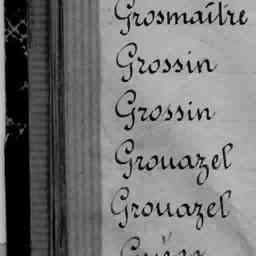 Grosmaître
Grossin
Grossin
Grouazel
Grouazel